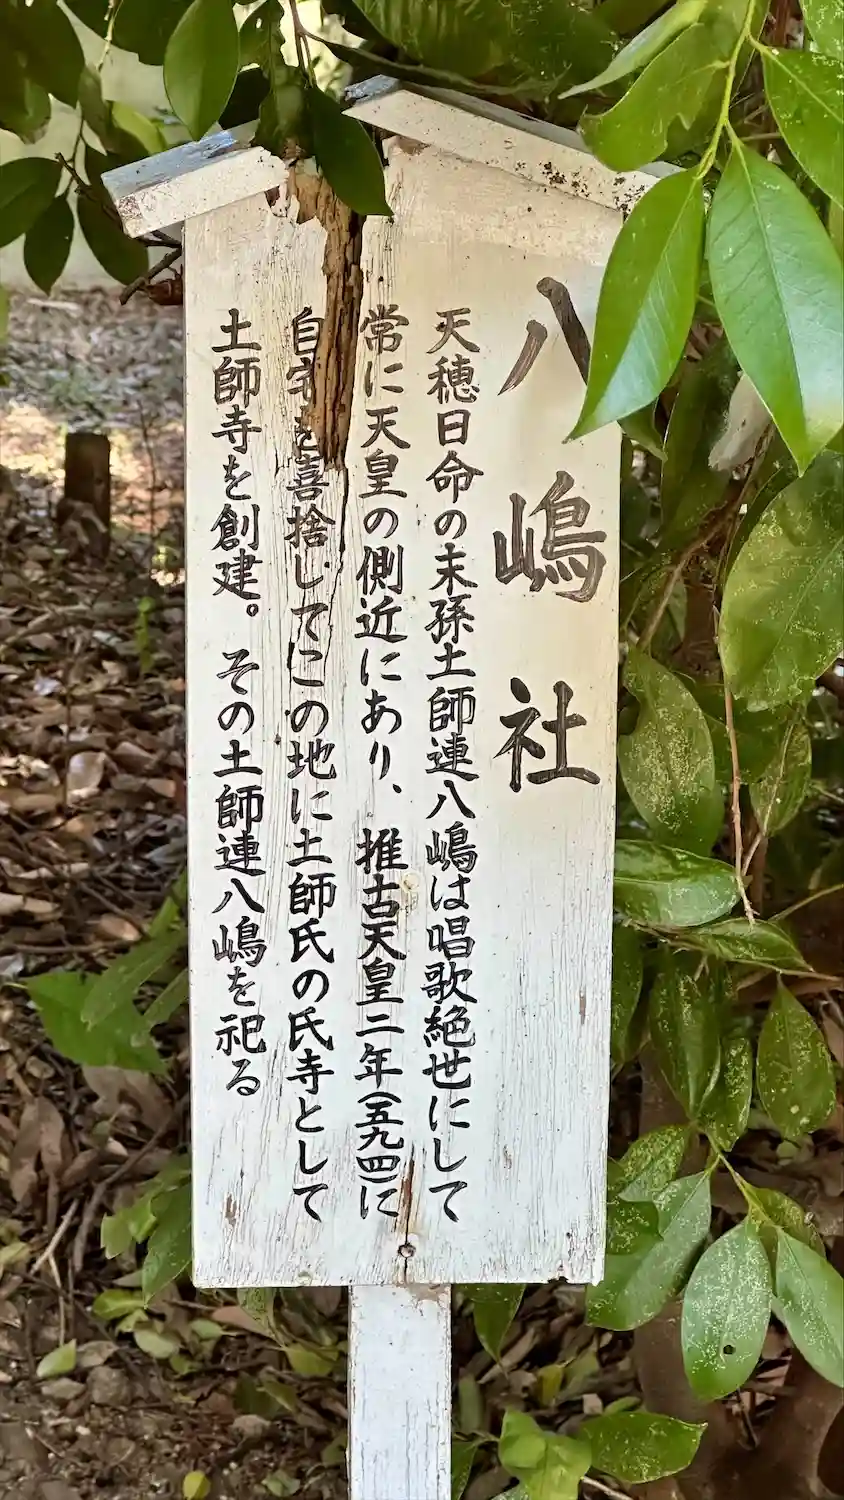 八嶋社
天穂日命の末孫土師連八嶋は唱歌絶世にして
常に天皇の側近にあり、推古天皇二年(五九四)に
自宅を喜捨してこの地に土師氏の氏寺として
土師寺を創建。その土師連八嶋を祀る